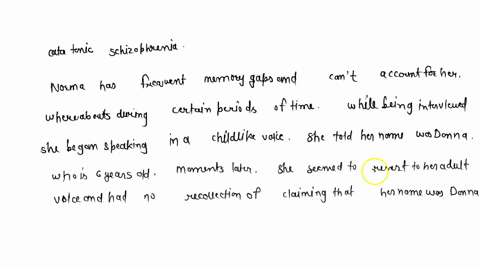 cata tonic schizophrenia.
Norma has frequent memory gaps and can't account for her.
whereabouts during certain periods of time. while being interviewed
she began speaking in a childlike voice. She told her name was Donna.
who is 6 years old. moments later. she seemed to revert to her adult
voice and had no recollection of claiming that her name was Donna